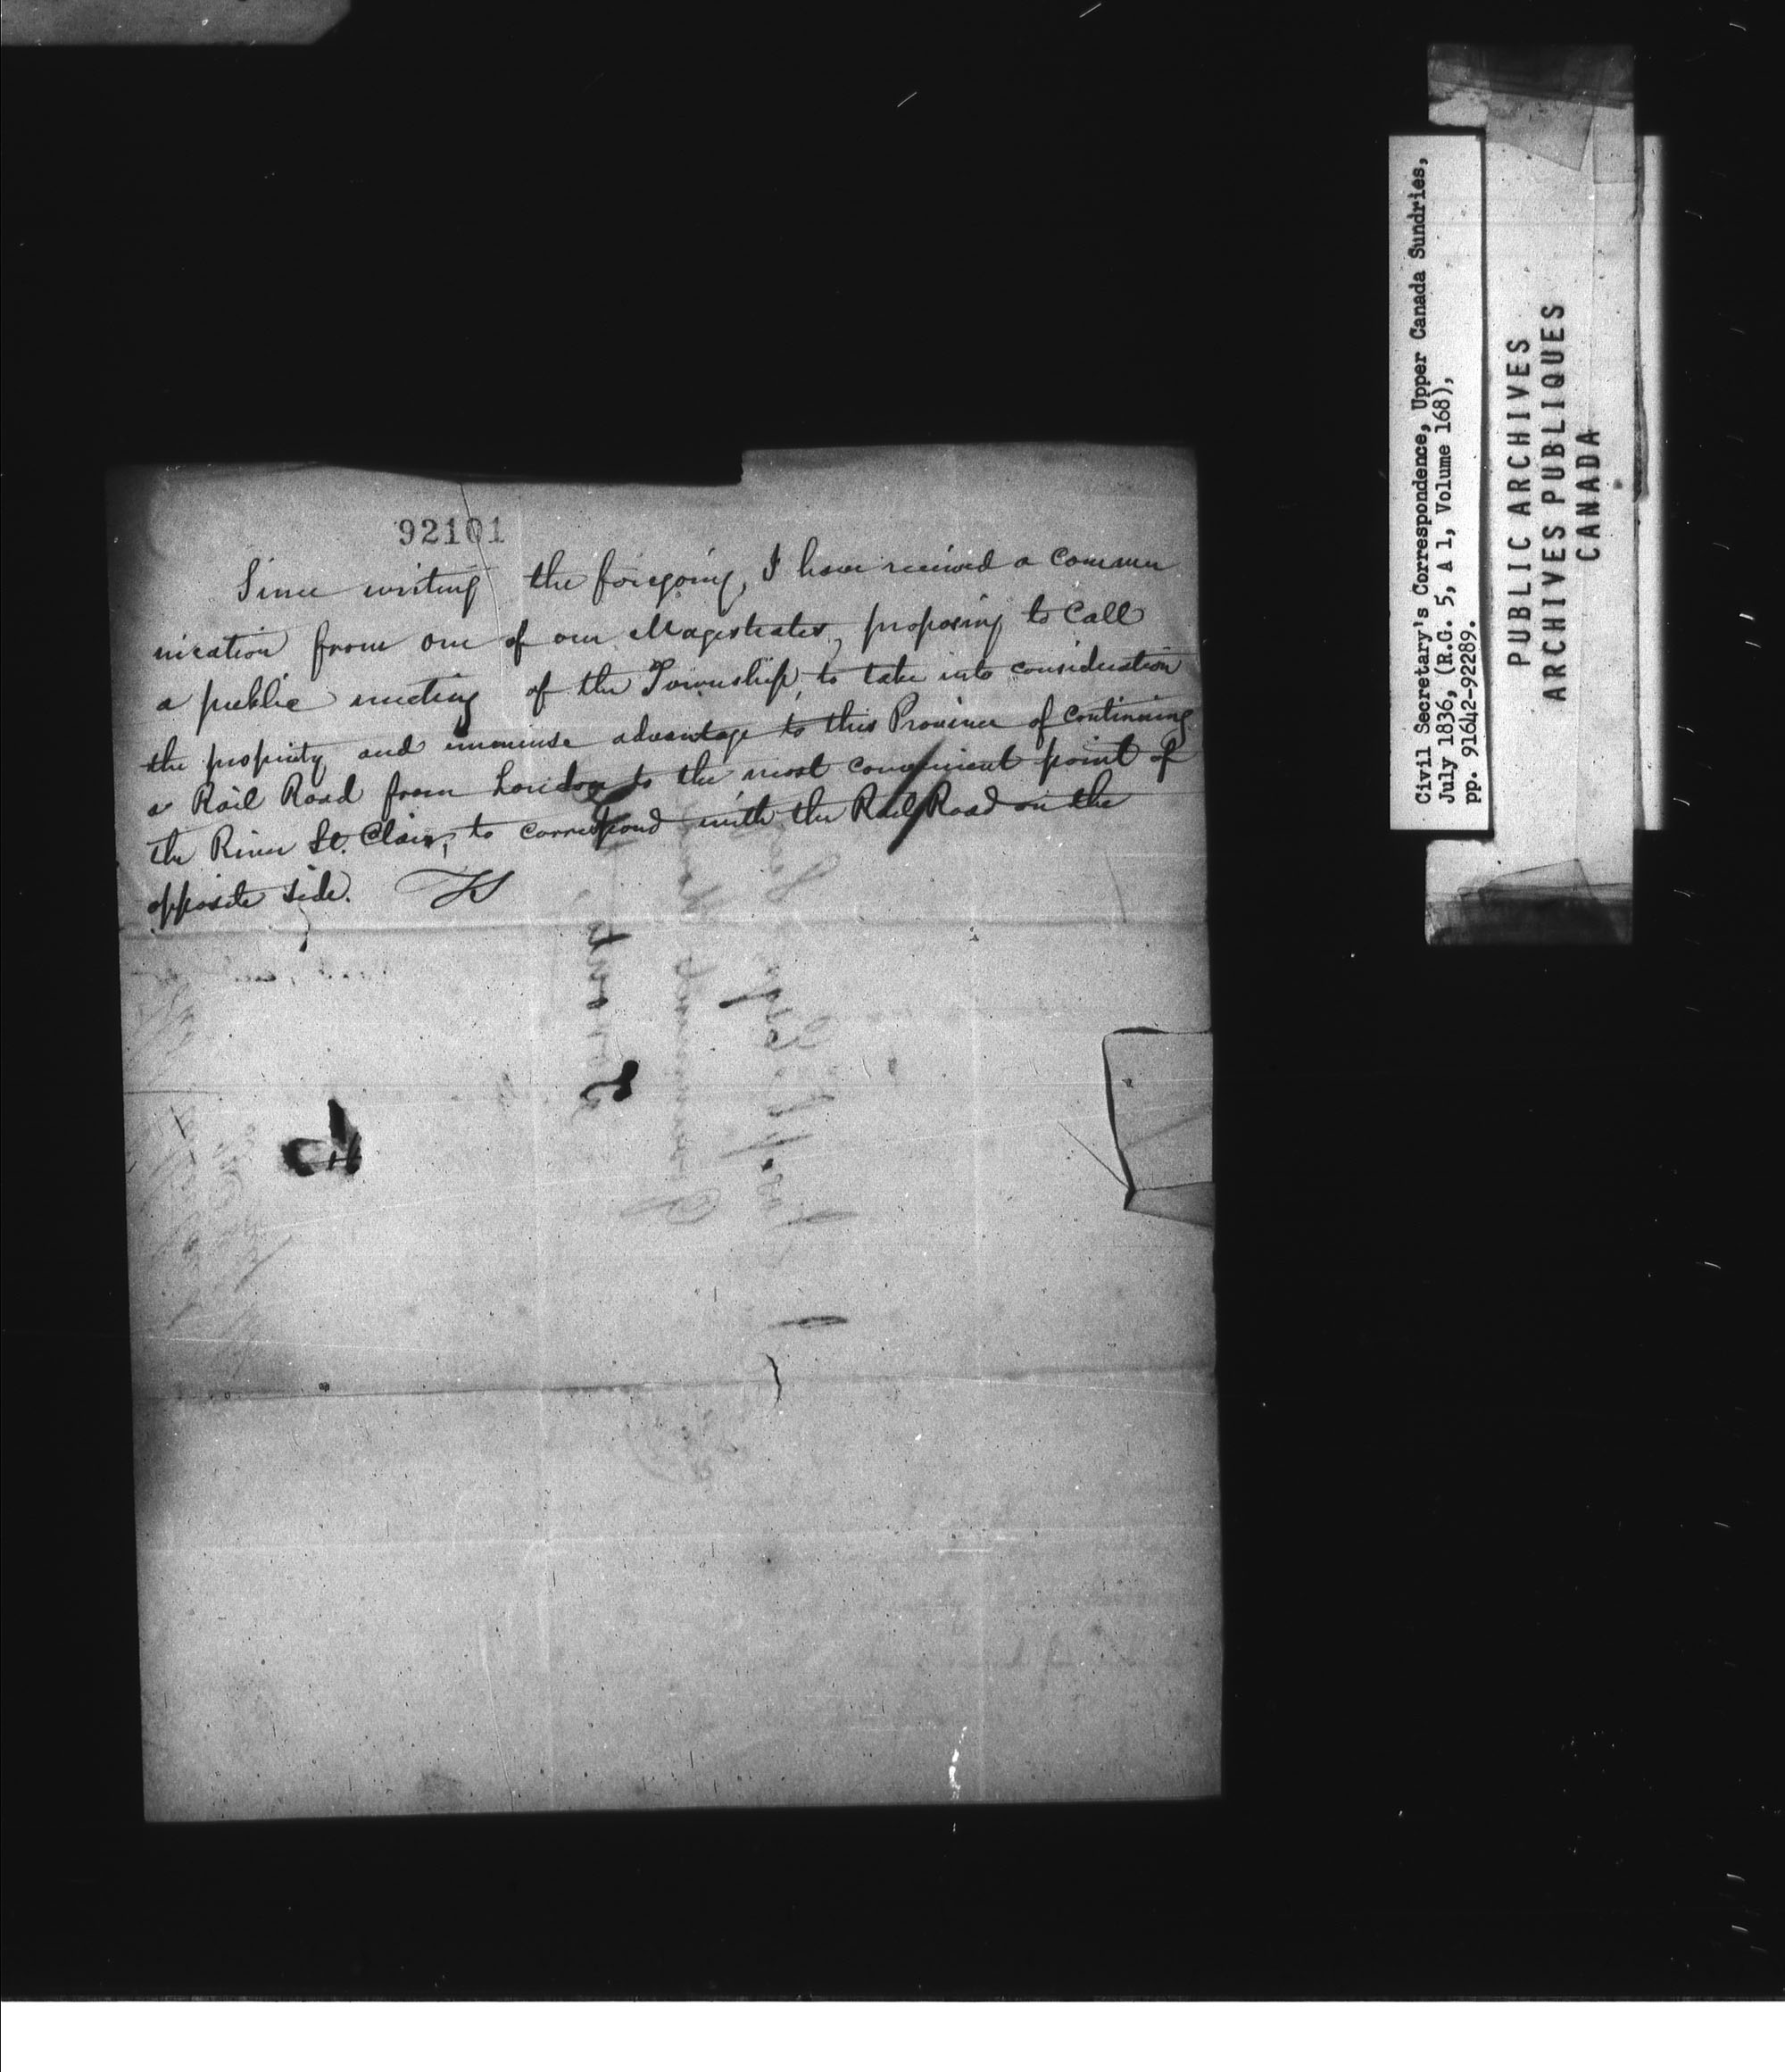 92101
Since writing the foregoing, I have received a commu
nication from one of our Magistrates, proposing to Call
a public meeting of the Township, to take into consideration
the propriety and immense advantage to this Province of continuing
a Rail Road from London to the most convenient point of
the River St. Clair, to correspond with the Rail Road on the
opposite side.
Civil Secretary's Correspondence, Upper Canada Sundries,
July 1836, (R.G. 5, A 1, Volume 168),
pp. 91642-92289.
PUBLIC ARCHIVES
ARCHIVES PUBLIQUES
CANADA